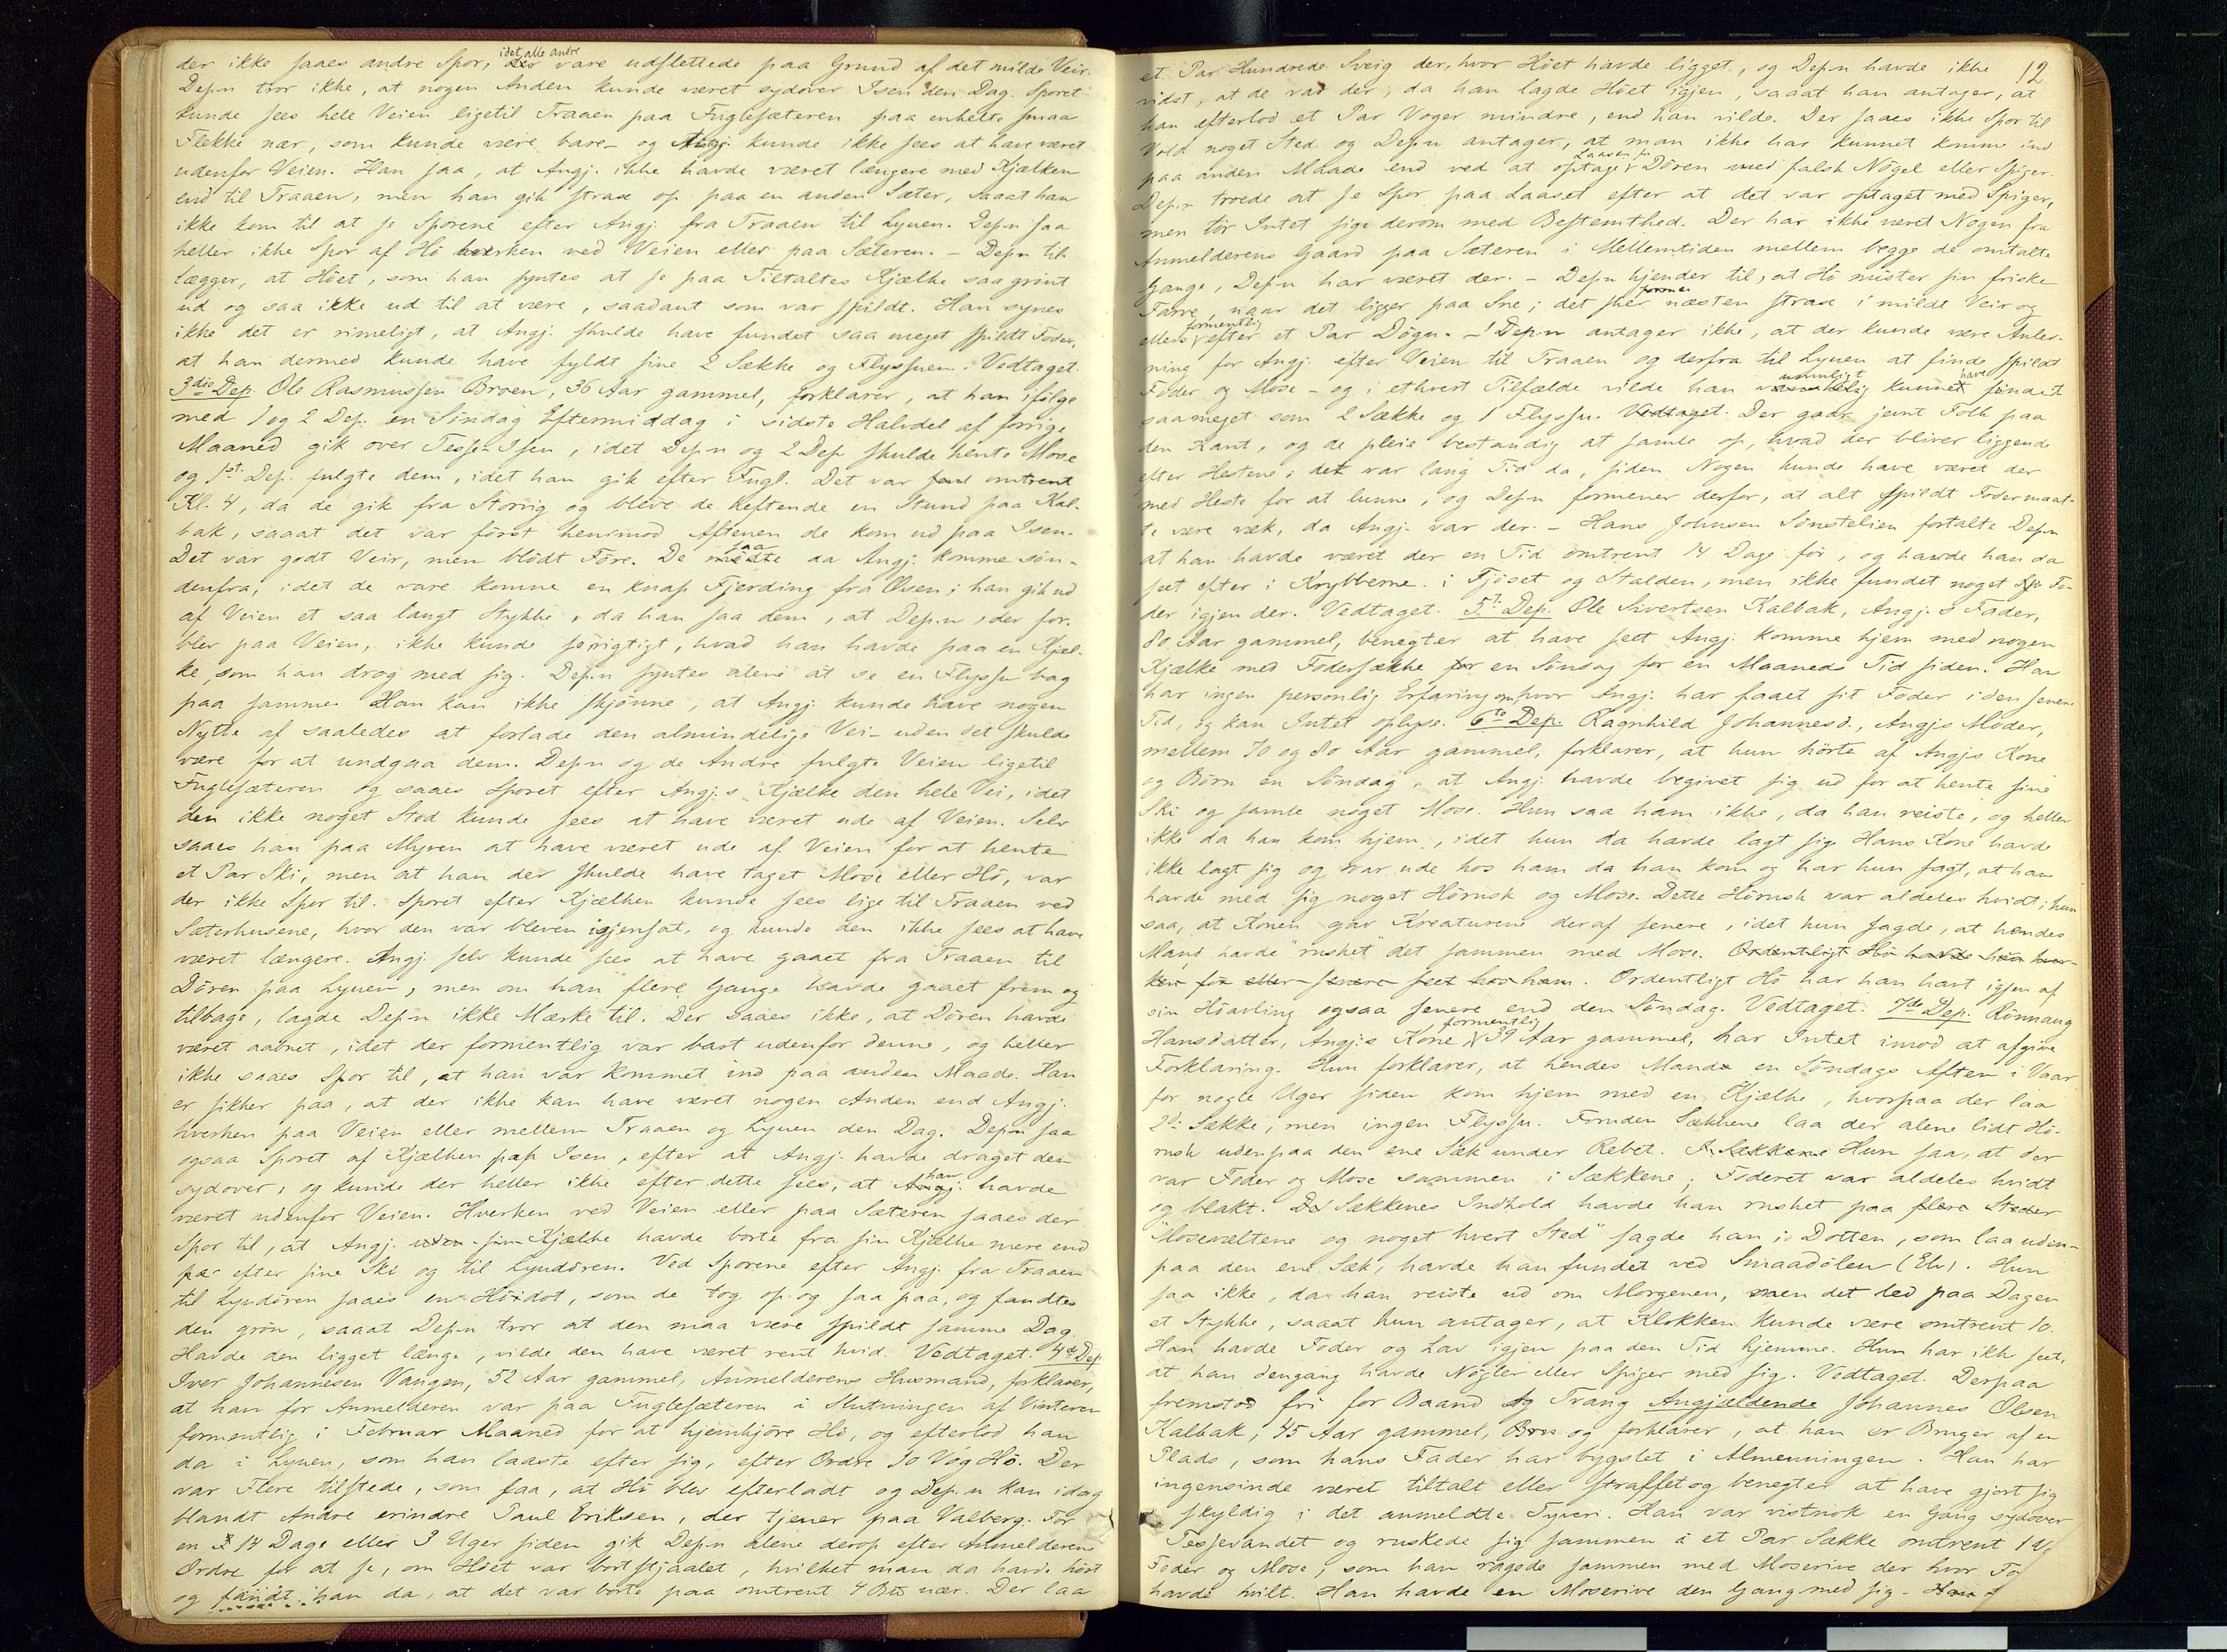 der ikke saaes andre Spor, idet alle andre vare udslettede paa Grund af det milde Veir.
Depn tror ikke, at nogen Anden kunde været sydover Isen den Dag. Sporet
kunde sees hele Veien ligetil Traaen paa Fuglesæteren paa enkelte smaa
Flekke nær, som kunde være bare – og Angj. kunde ikke sees at have været
udenfor Veien. Han saa, at Angj. ikke havde været længere med Kjælken
end til Traaen, men han gik strax op paa en anden Sæter, saaat han
ikke kom til at se Sporene efter Angj. fra Traaen til Lyuen. Depn saa
heller ikke Spor af Hö hverken ved Veien eller paa Sæteren. – Depn til-
lægger, at Höet, som han syntes at se paa Tiltaltes Kjælke saa grönt
ud og saa ikke ud til at være, saadant som var spildt. Han synes
ikke det er rimeligt, at Angj. skulde have fundet saa meget spildt Foder,
at han dermed kunde have fyldt sine 2 Sække og Flyssuen. Vedtaget.
3die Dep. Ole Rasmussen Broen, 36 Aar gammel, forklarer, at han ifölge
med 1 og 2 Dep. en Söndag Eftermiddag i sidste Halvdel af forrige
Maaned gik over Tesse-Isen, idet Depn og 2 Dep skulde hente Mose
og 1ste Dep. fulgte dem, idet han gik efter Fugl. Det var omtrent
Kl. 4, da de gik fra Storvig og bleve de heftende en Stund paa Kal-
bak, saaat det var först henimod Aftenen de kom ud paa Isen.
Det var godt Veir, men blödt Före. De saa da Angj. komme sön-
denfra, idet de vare komne en knap Fjerding fra Osen; han gik ud
af Veien et saa langt Stykke, da han saa dem, at Depn, der for-
blev paa Veien, ikke kunde se rigtigt, hvad han havde paa en Kjæl-
ke, som han drog med sig. Depn syntes alene at se en Flyssu bag
paa samme. Han kan ikke skjönne, at Angj. kunde have nogen
Nytte af saaledes at forlade den almindelige Vei – uden det skulde
være for at undgaa dem. Depn og de Andre fulgte Veien ligetil
Fuglesæteren og saaes Sporet efter Angj.s Kjælke den hele Vei, idet
den ikke noget Sted kunde sees at have været ude af Veien. Selv
saaes han paa Myren at have været ude af Veien for at hente
et Par Ski, men at han der skulde have taget Mose eller Hö, var
der ikke Spor til. Sporet efter Kjælken kunde sees lige til Traaen ved
Sæterhusene, hvor den var bleven igjensat, og kunde den ikke sees at have
været længere. Angj. selv kunde sees at have gaaet fra Traaen til
Dören paa Lyuen, men om han flere Gange havde gaaet frem og
tilbage, lagde Depn ikke Mærke til. Der saaes ikke, at Dören havde
været aabnet, idet der formentlig var bart udenfor denne, og heller
ikke saaes Spor til, at han var kommet ind paa anden Maade. Han
er sikker paa, at der ikke kan have været nogen Anden end Angj.
hverken paa Veien eller mellem Traaen og Lyuen den Dag. Depn saa
ogsaa Sporet af Kjælken paa Isen, efter at Angj. havde draget den
sydover, og kunde der heller ikke efter dette sees, at han havde
været udenfor Veien. Hverken ved Veien eller paa Sæteren saaes der
Spor til, at Angj. havde borte fra sin Kjælke mere end
par efter sine Ski og til Lyudören. Ved Sporene efter Angj. fra Traaen
til Lyudören saaes en Hödot, som de tog op og saa paa, og fandtes
den grön, saaat Depn tror at den maa være spildt samme Dag.
Havde den ligget længe, vilde den have været rent hvid. Vedtaget. 4de Dep.
Iver Johannesen Vangen, 52 Aar gammel, Anmelderens Husmand, forklarer,
at han for Anmelderen var paa Fuglesæteren i Slutningen af Vinteren
formentlig i Februar Maaned for at hjemkjöre Hö, og efterlod han
da i Lyuen, som han laaste efter sig, efter Ordre 10 Vog Hö. Der
var Flere tilstede, som saa, at Hö blev efterladt og Depn kan idag
blandt Andre erindre Paul Eriksen, der tjener paa Valberg. For
en 14 Dage eller 3 Uger siden gik Depn alene derop efter Anmelderens
Ordre for at se, om Höet var bortstjaalet, hvilket man da havde hört
og fandt han da, at det var borte paa omtrent 4 nær. Der laa
12
et Par Hundrede Sveig der, hvor Höet havde ligget, og Depn havde ikke
vidst, at de var der, da han lagde Höet igjen, saaat han antager, at
han efterlod et Par Voger mindre, end han vilde. Der saaes ikke Spor til
Vold noget Sted og Depn antager, at man ikke har kunnet komme ind
paa anden Maade end ved at optage Laasen for Dören med falsk Nögel eller Spiger.
Depn troede at se Spor paa Laaset efter at det var optaget med Spiger,
men tör Intet sige derom med Bestemthed. Der har ikke været Nogen fra
Anmelderens Gaard paa Sæteren i Mellemtiden mellem begge de omtalte
Gange, Depn har været der. – Depn kjender til, at Hö mister sin friske
Farve, naar det ligger paa Sne; det sker næsten strax i mildt Veir og
ellers formentlig efter et Par Dögn. – Depn antager ikke, at der kunde være Anled-
ning for Angj. efter Veien til Traaen og derfra til Lyuen at finde spildt
Foder og Mose – og i ethvert Tilfælde vilde han umuligt kunne have fundet
saameget som 2 Sække og 1 Flyssu. Vedtaget. Der gaar jevnt Folk paa
den Kant, og de pleie bestandig at samle op, hvad der bliver liggende
efter Hestene; det var lang Tid da, siden Nogen kunde have været der
med Heste for at lunne, og Depn formener derfor, at alt spildt Foder maat-
te være væk, da Angj. var der. – Hans Johnsen Sönstelien fortalte Depn
at han havde været der en Tid omtrent 14 Dage för, og havde han da
seet efter i Krybberne i Fjöset og Stalden, men ikke fundet noget Fo-
der igjen der. Vedtaget. 5te Dep. Ole Sivertsen Kalbak, Angj.s Fader,
80 Aar gammel, benegter at have seet Angj. komme hjem med nogen
Kjælke med Fodersække en Söndag for en Maaneds Tid siden. Han
har ingen personlig Erfaring om hvor Angj. har faaet sit Foder i den senere
Tid, og kan Intet oplyse. 6te Dep. Ragnhild Johannesd., Angjs Moder,
mellem 70 og 80 Aar gammel, forklarer, at hun hörte af Angjs Kone
og Börn en Söndag, at Angj. havde begivet sig ud for at hente sine
Ski og samle noget Mose. Hun saa ham ikke, da han reiste, og heller
ikke da han kom hjem, idet hun da havde lagt sig. Hans Kone havde
ikke lagt sig og var ude hos ham da han kom og har hun sagt, at han
havde med sig noget Hörusk og Mose. Dette Hörusk var aldeles hvidt; hun
saa, at Konen gav Kreaturene deraf senere, idet hun sagde, at hendes
Mand havde "rusket" det sammen med Mose. Ordentligt Hö havde hun hver-
ken för eller senere seet hos ham. Ordentligt Hö har han havt igjen af
sin Höavling ogsaa senere end den Söndag. Vedtaget. 7de Dep. Rönnaug
Hansdatter, Angj.s Kone, formentlig 39 Aar gammel, har Intet imod at afgive
Forklaring. Hun forklarer, at hendes Mand en Söndags Aften i Vaar
for nogle Uger siden kom hjem med en Kjælke, hvorpaa der laa
2de Sække, men ingen Flyssu. Foruden Sækkene laa der alene lidt Hö-
rusk udenpaa den ene Sæk under Rebet. Hun saa, at der
var Foder og Mose sammen i Sækkene; Foderet var aldeles hvidt
og blakt. Sækkenes Indhold havde han rusket paa flere Steder
"Mosevæltene og noget hvert Sted" sagde han; Dotten, som laa uden-
paa den ene Sæk, havde han fundet ved Smaadölen (Elv). Hun
saa ikke, da han reiste ud om Morgenen, men det led paa Dagen
et Stykke, saaat hun antager, at Klokken kunde være omtrent 10.
Han havde Foder og Lav igjen paa den Tid hjemme. Hun har ikke seet,
at han dengang havde Nøgler eller Spiger med sig. Vedtaget. Derpaa
fremstod fri for Baand og Tvang Angjældende Johannes Olsen
Kalbak, 45 Aar gammel, og forklarer, at han er Bruger af en
Plads, som hans Fader har bygslet i Almenningen. Han har
ingensinde været tiltalt eller straffet og benegter at have gjort sig
skyldig i det anmeldte Tyveri. Han var vistnok en Gang sydover
Tessevandet og ruskede sig sammen i et Par Sække omtrent 1
Foder og Mose, som han ragede sammen med Moserive der hvor
havde hvilt. Han havde en Moserive den Gang med sig.